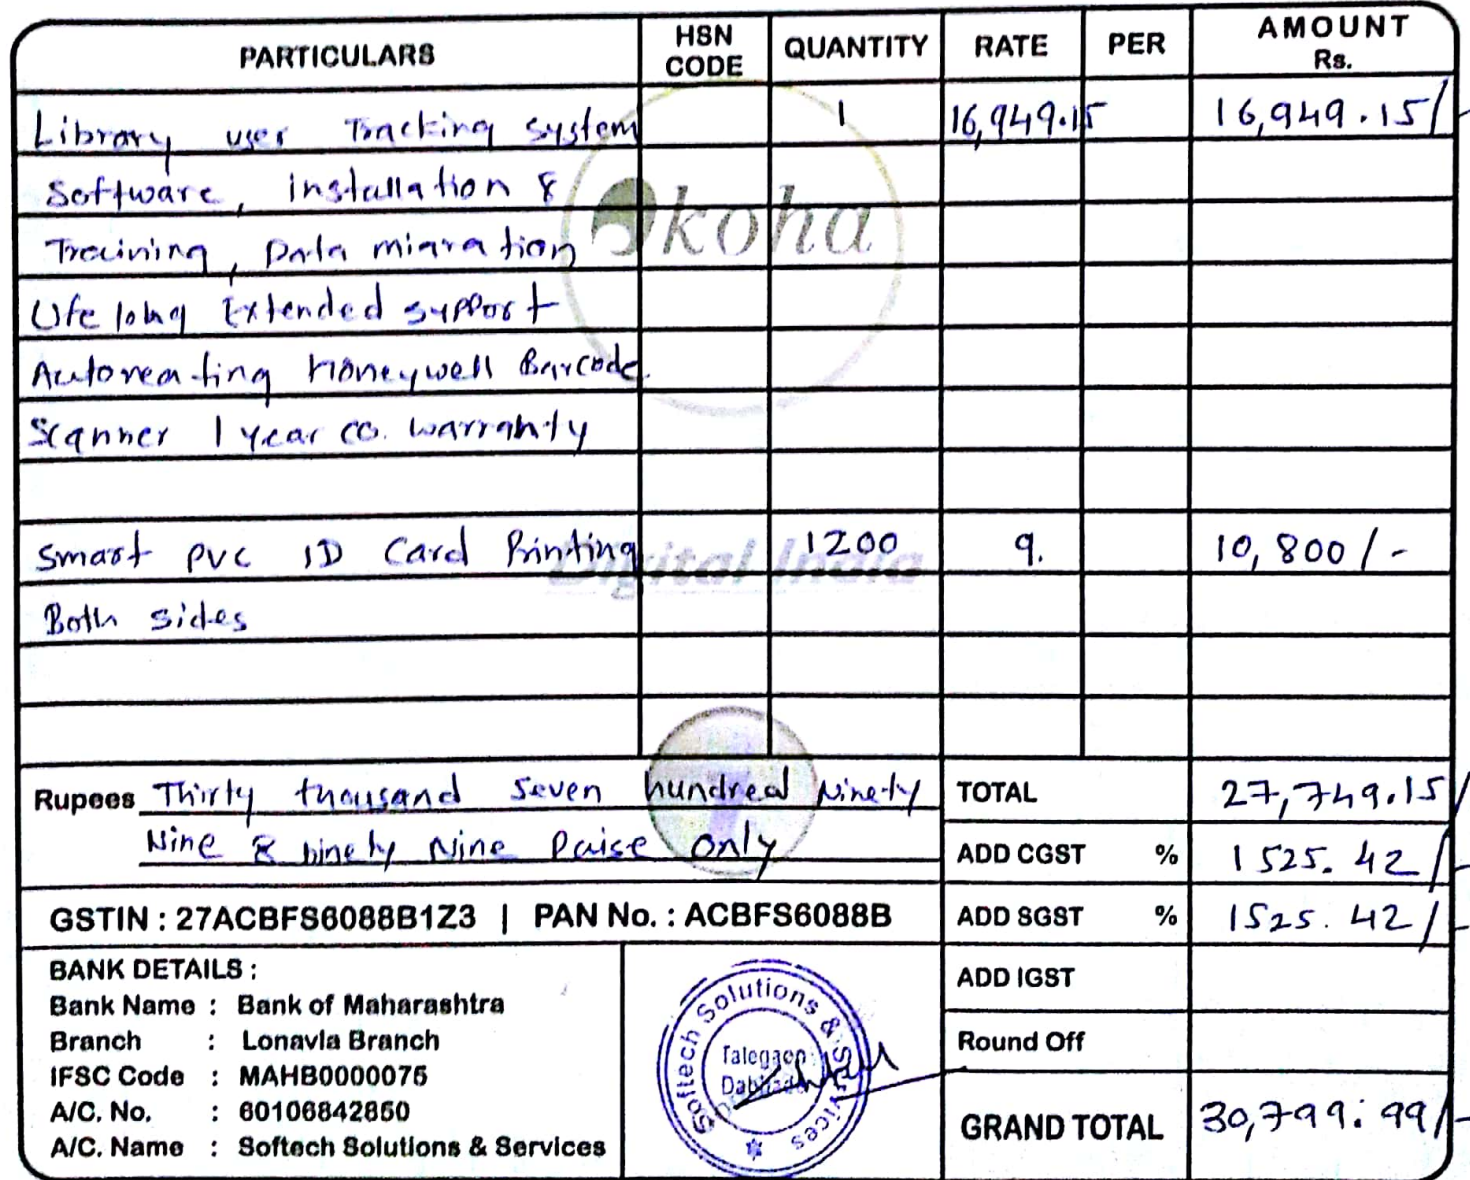 PARTICULARS HSN CODE QUANTITY RATE PER AMOUNT Rs.
Library user Tracking system 1 16,949.15 16,949.15/-
Software, installation &
Training, Data migration
Life long Extended support
Autoreating Honeywell Barcode
Scanner 1 year co. warranty
koha
Smart PVC ID Card Printing 1200 9. 10,800/-
Digital India
Both sides
Rupees Thirty thousand Seven hundred Ninety
Nine & ninety Nine Paise only
TOTAL 27,749.15/
ADD CGST % 1525.42/-
GSTIN : 27ACBFS6088B1Z3 | PAN No. : ACBFS6088B
ADD SGST % 1525.42/-
BANK DETAILS :
Bank Name : Bank of Maharashtra
Branch : Lonavla Branch
IFSC Code : MAHB0000075
A/C. No. : 60106842850
A/C. Name : Softech Solutions & Services
Softech Solutions & Services
Talegaon
Dabhade
ADD IGST
Round Off
GRAND TOTAL 30,799.99/-